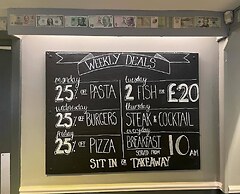 WEEKLY DEALS
monday
25% OFF PASTA
tuesday
2 FISH FOR £20
wednesday
25% OFF BURGERS
thursday
STEAK & COCKTAIL
friday
25% OFF PIZZA
everyday
BREAKFAST
SERVED FROM
10AM
SIT IN OR TAKEAWAY